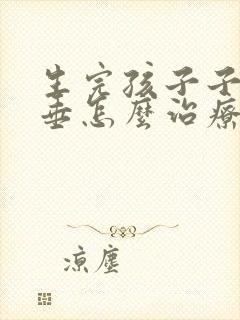 生完孩子子
垂怎麼治療
涼塵